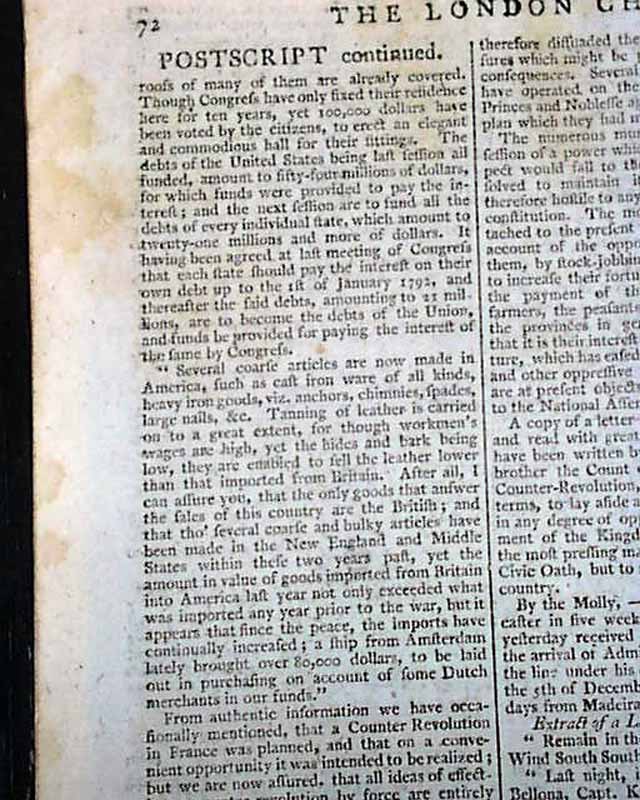 72
THE LONDON CH
POSTSCRIPT continued.
roofs of many of them are already covered.
Though Congreſs have only fixed their reſidence
here for ten years, yet 100,000 dollars have
been voted by the citizens, to erect an elegant
and commodious hall for their ſittings. The
debts of the United States being laſt ſeſſion all
funded, amount to fifty-four millions of dollars,
for which funds were provided to pay the in-
tereſt; and the next ſeſſion are to fund all the
debts of every individual ſtate, which amount to
twenty-one millions and more of dollars. It
having been agreed at laſt meeting of Congreſs
that each ſtate ſhould pay the intereſt on their
own debt up to the 1ſt of January 1792, and
thereafter the ſaid debts, amounting to 21 mil-
lions, are to become the debts of the Union,
and funds be provided for paying the intereſt of
the ſame by Congreſs.
" Several coarſe articles are now made in
America, ſuch as caſt iron ware of all kinds,
heavy iron goods, viz. anchors, chimnies, ſpades,
large nails, &c. Tanning of leather is carried
on to a great extent, for though workmen's
wages are high, yet the hides and bark being
low, they are enabled to ſell the leather lower
than that imported from Britain. After all, I
can aſſure you, that the only goods that anſwer
the ſales of this country are the Britiſh; and
that tho' ſeveral coarſe and bulky articles have
been made in the New England and Middle
States within theſe two years paſt, yet the
amount in value of goods imported from Britain
into America laſt year not only exceeded what
was imported any year prior to the war, but it
appears that ſince the peace, the imports have
continually increaſed; a ſhip from Amſterdam
lately brought over 80,000 dollars, to be laid
out in purchaſing on account of ſome Dutch
merchants in our funds."
From authentic information we have occa-
ſionally mentioned, that a Counter Revolution
in France was planned, and that on a conve-
nient opportunity it was intended to be realized;
but we are now aſſured, that all ideas of effect-
revolution by force are entirely
therefore diſſuaded the
ſures which might be
conſequences. Several
have operated on the
Princes and Nobleſſe a
plan which they had
The numerous
ſeſſion of a power whi
pect would fail to th
ſolved to maintain it
therefore hoſtile to any
conſtitution. The m
tached to the preſent
account of the opp
them, by ſtock-jobbin
to increaſe their fort
the payment of th
farmers, the peaſant
the provinces in ge
that it is their intereſt
ture, which has eaſed
and other oppreſſive
are at preſent object
to the National Aſſe
A copy of a letter
and read with great
have been written b
brother the Count
Counter-Revolution,
terms, to lay aſide a
in any degree of op
ment of the Kingd
the moſt preſſing m
Civic Oath, but to
country.
By the Molly, —
eaſter in five week
yeſterday received
the arrival of Admi
the line under his
the 5th of Decemb
days from Madeira
Extract of a L
" Remain in th
Wind South South
" Laſt night,
Bellona, Capt. K